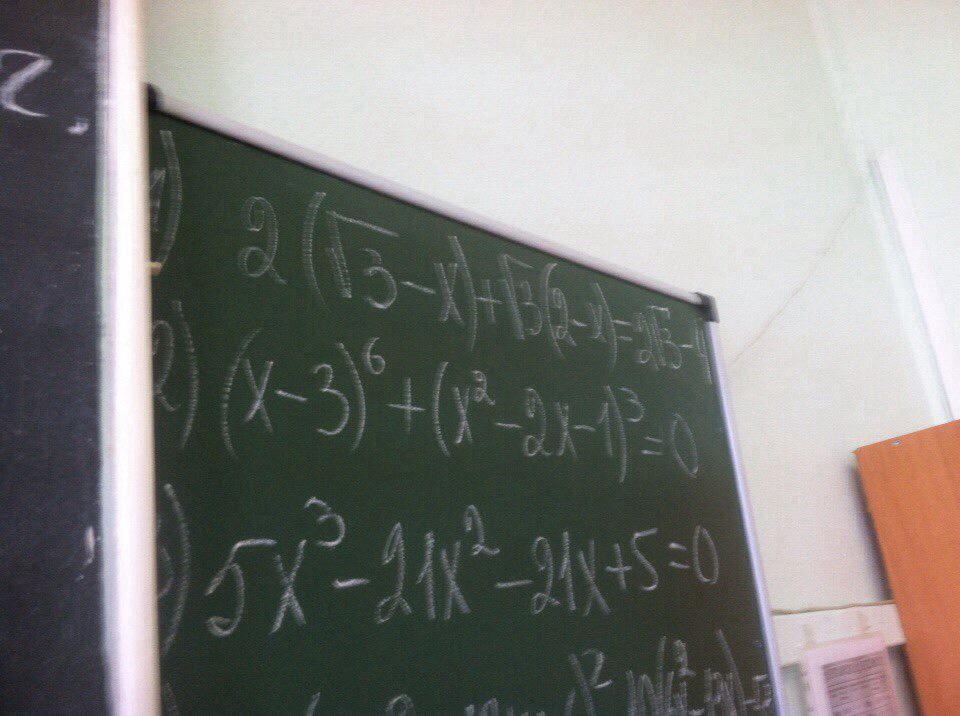 1) 2(√3-x)+√3(2-x)=2√3-4
2) (x-3)⁶+(x²-2x-1)³=0
) 5x³-21x²-21x+5=0